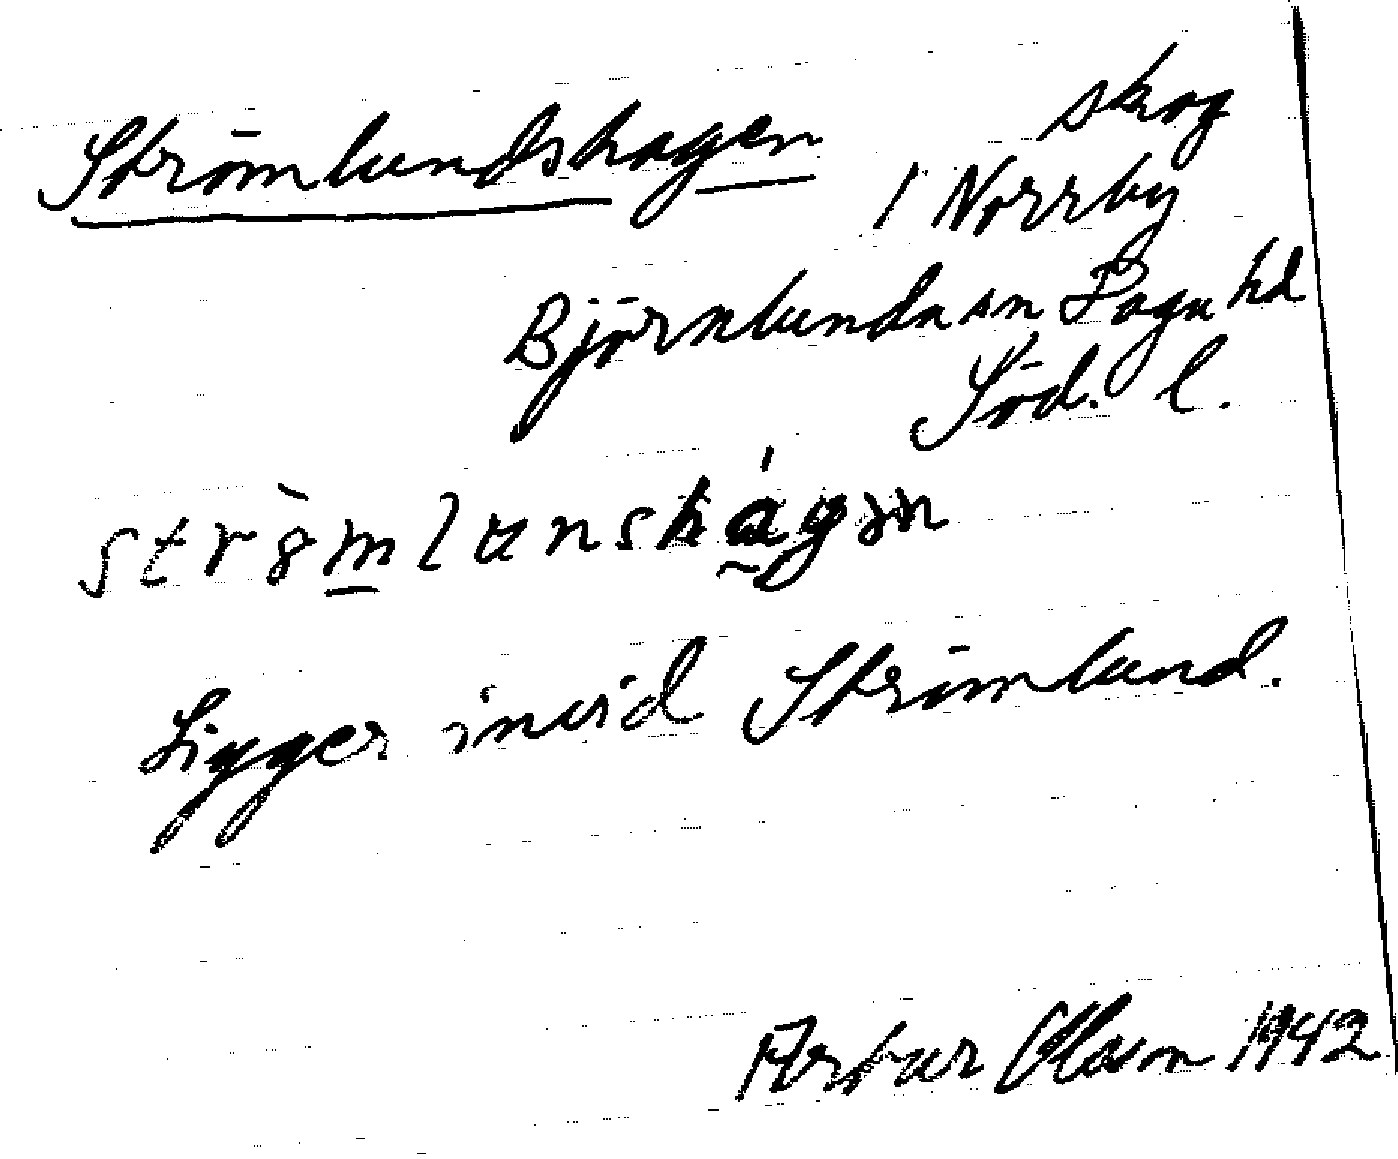 Strömlundshagen skog
i Norrby
Björnlunda sn Daga hd
Söd. l.
strö̀mlunshágən
Ligger invid Strömlund.
Artur Olsson 1942